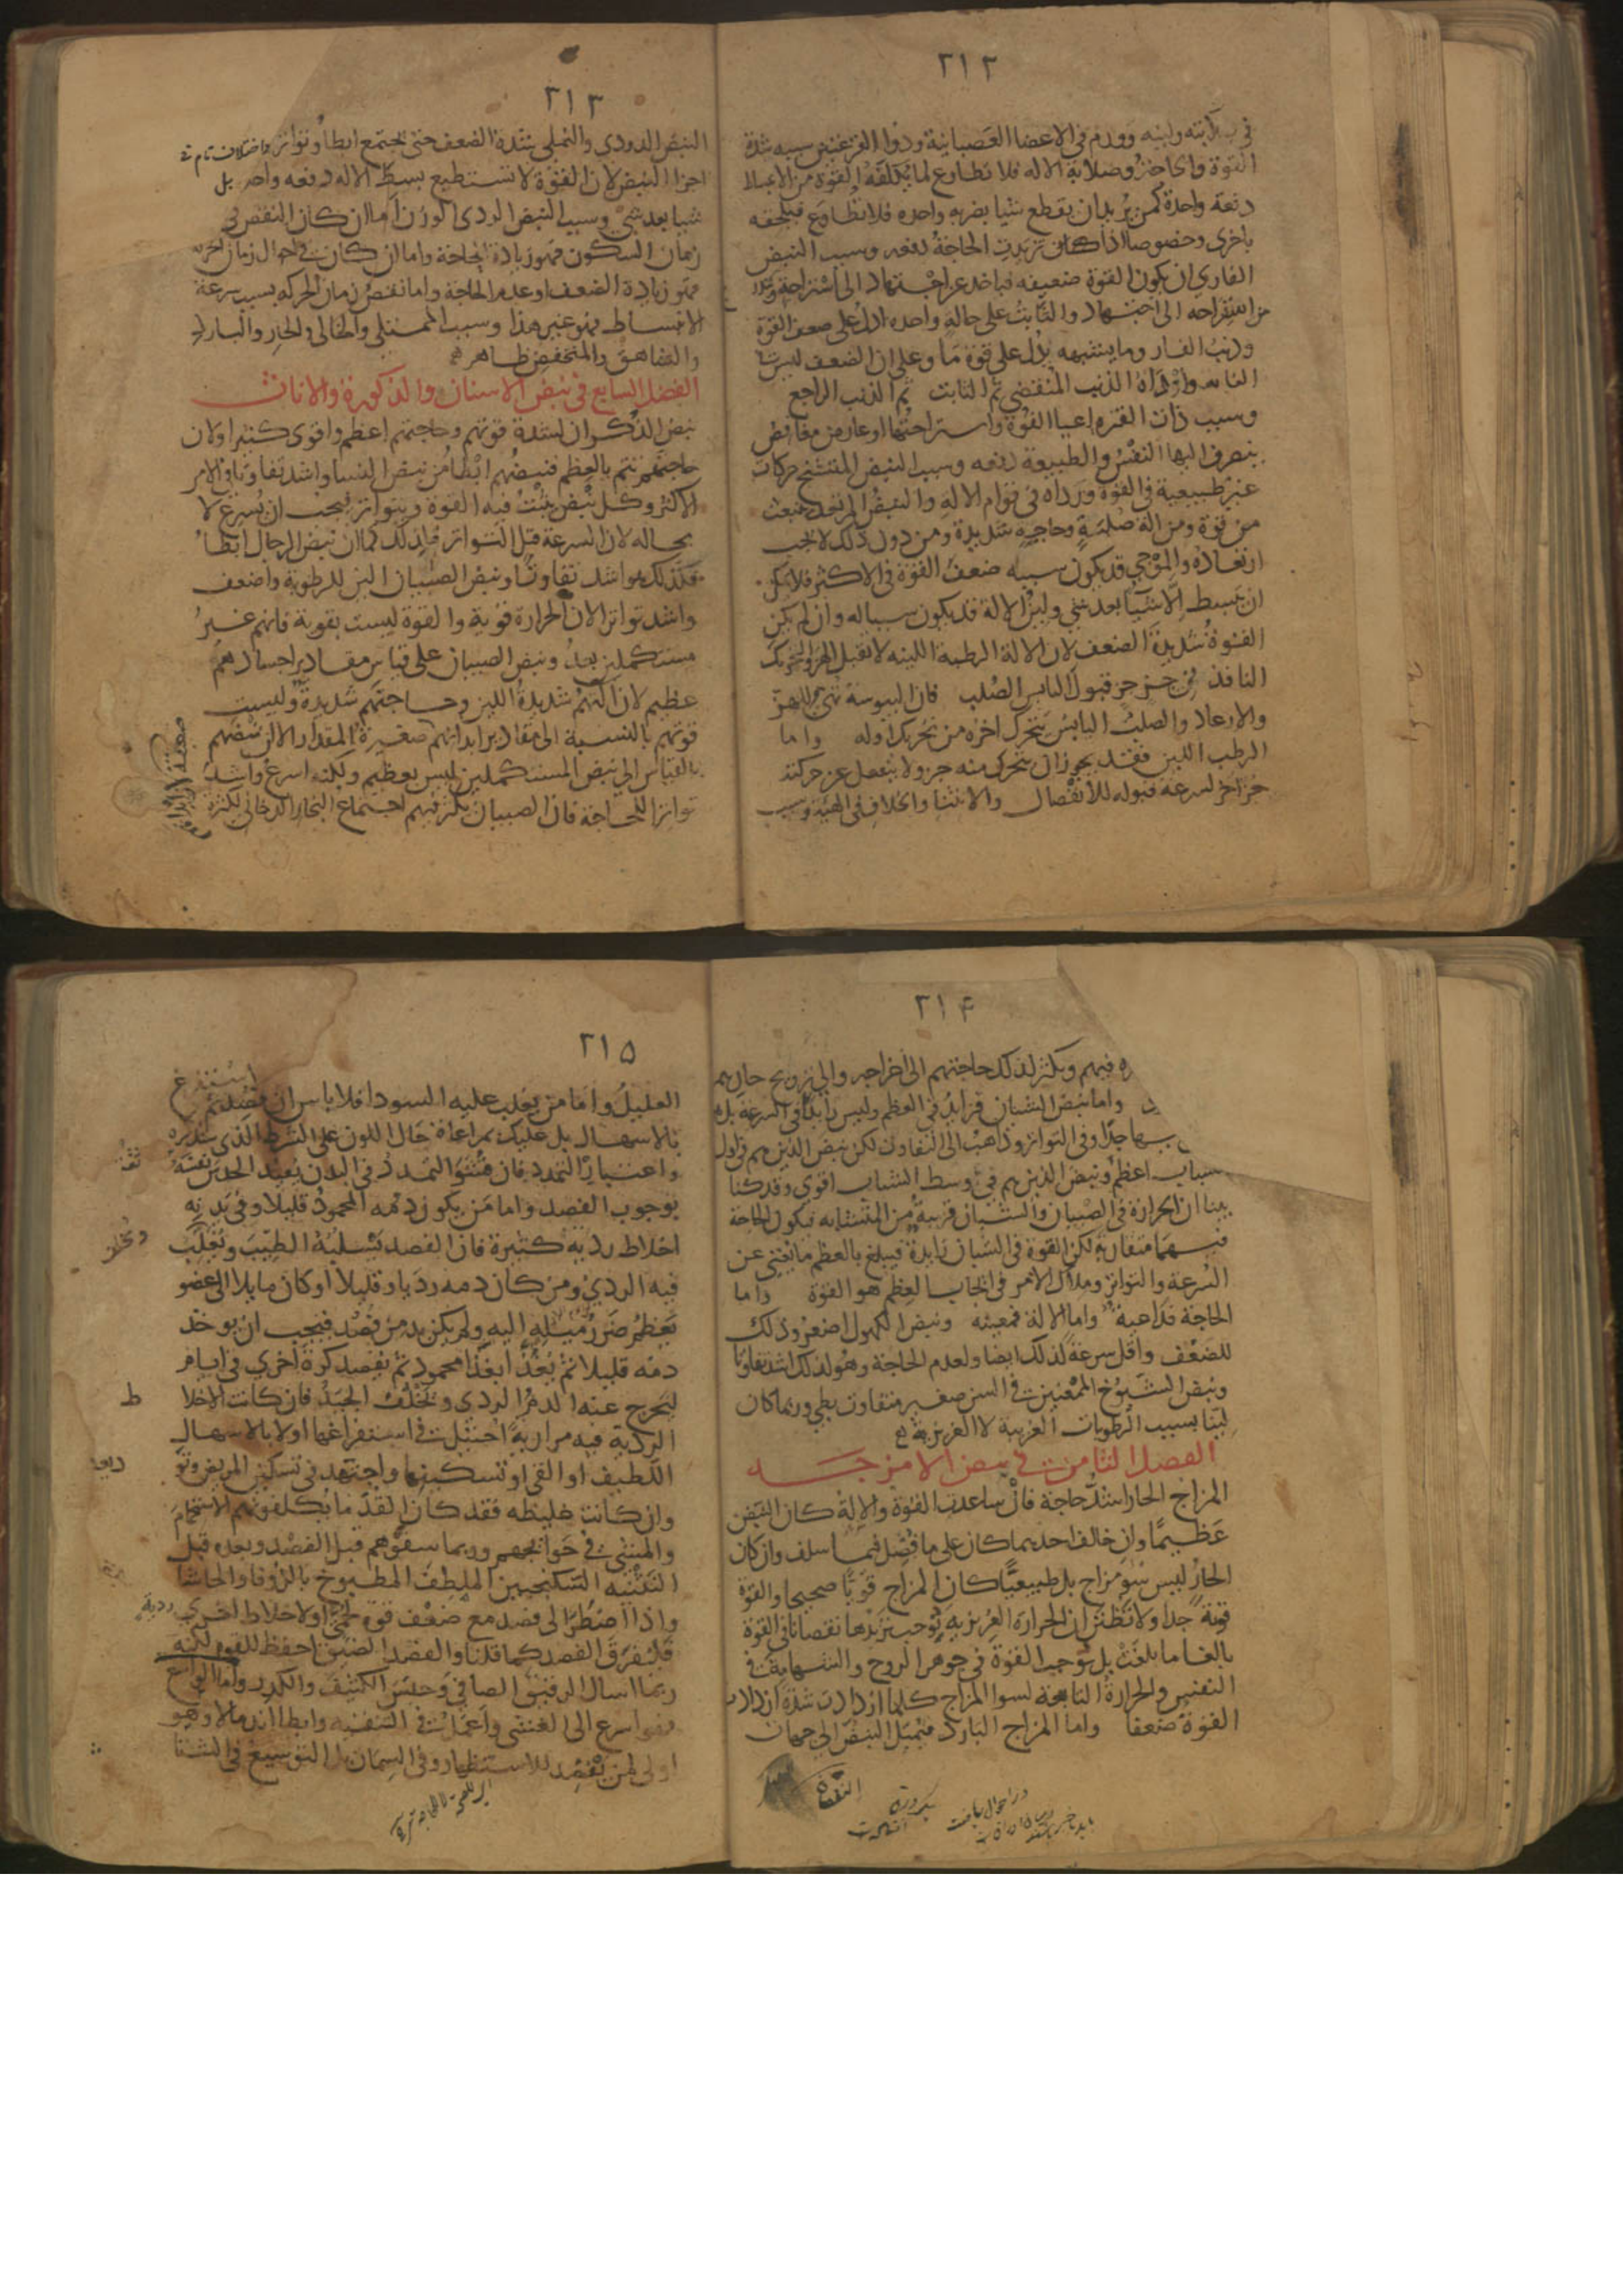 ٢١٢
في صلابته ولينه وورم في الاعضا العصبانية وذوا القرعتين سببه شدة
القوة والحاجة وصلابة الالة فلا تطاوع لما تكلفه القوة من الانبساط
دفعة واحدة كمن يريد ان يقطع شيا بضربه واحده فلا تطاوع فيلحقه
باخرى وخصوصا اذا كان تزيدت الحاجة دفعه وسبب النبض
الفاري ان يكون القوة ضعيفه فياخذ عن اجتهاد الى استراحة
من استراحه الى اجتهاد والثابت على حالة واحده ادل على ضعف القوة
وذنب الفار وما يشبهه يدل على قوة ما وعلى ان الضعف ليس
الذنب المنقضي ثم الثابت ثم الذنب الراجع
وسبب ذات الفتره اعيا القوة واستراحتها او عارض مغافص
ينصرف اليها النفس والطبيعة دفعه وسبب النبض المتشنج حركات
غير طبيعية في القوة ورداه في قوام الالة والنبض المرتعد ينبعث
من قوة ومن الة صلبة وحاجة شديدة ومن دون ذلك لا يجب
ارتعاده والموجي قد يكون سببه ضعف القوة في الاكثر فلا تمكن
ان يبسط الا شيا بعد شي ولين الالة قد يكون سببا له وان لم يكن
القوة شديدة الضعف لان الالة الرطبة اللينه لا تقبل الهز والتحريك
النافذ في جز جز قبول اليابس الصلب فان اليبوسة تهي للهز
والارعاد والصلب اليابس يتحرك اخره من تحريك اوله واما
الرطب اللين فقد يجوز ان يتحرك منه جز ولا ينفعل عن حركته
جز اخر لسرعة قبوله للانفصال والانثنا والخلاف في الهيئة وسبب
٢١٣
النبض الدودي والنملي شدة الضعف حتى يجتمع ابطا وتواتر واختلاف تام في
اجزا النبض لان القوة لا تستطيع بسط الالة دفعه واحده بل
شيا بعد شي وسبب النبض الردي الوزن اما ان كان النقص في
زمان السكون فهو زيادة الحاجة واما ان كان في احوال زمان الحركة
فهو زيادة الضعف او عدم الحاجة واما نقص زمان الحركه بسبب سرعة
الانبساط فهو غير هذا وسبب الممتلي والخالي والحار والبارد
والشاهق والمنخفض ظاهر
الفصل السابع في نبض الاسنان والذكورة والاناث
نبض الذكران لشدة قوتهم وحاجتهم اعظم واقوى كثيرا ولان
حاجتهم تتم بالعظم فنبضهم ابطا من نبض النسا واشد تفاوتا في الامر
الاكثر وكل نبض يثبت فيه القوة ويتواتر فيجب ان يسرع لا
محاله لان السرعة قبل التواتر فلذلك كما ان نبض الرجال ابطا
فكذلك هو اشد تفاوتا ونبض الصبيان الين للرطوبة واضعف
واشد تواترا لان الحرارة قوية والقوة ليست بقوية فانهم غير
مستكملين بعد ونبض الصبيان على قياس مقادير اجسادهم
عظيم لان آلتهم شديدة اللين وحاجتهم شديدة وليست
قوتهم بالنسبة الى مقادير ابدانهم صغيرة المقدار الا ان نبضهم
بالقياس الى نبض المستكملين ليس بعظيم ولكنه اسرع واشد
تواترا للحاجة فان الصبيان يكثر فيهم اجتماع البخار الدخاني لكثرة
٢١۴
فيهم ويكثر لذلك حاجتهم الى اخراجه والى ترويح حارهم
واما نبض الشبان فزايد في العظم وليس زايدا في السرعة بل
جدا وفي التواتر وذاهب الى التفاوت لكن نبض الذين هم في اول
الشباب اعظم ونبض الذين هم في وسط الشباب اقوى وقد كنا
بينا ان الحرارة في الصبيان والشبان قريبة من المتشابه فيكون الحاجة
فيهما متقاربة لكن القوة في الشبان زايدة فيبلغ بالعظم ما يغني عن
السرعة والتواتر وملاك الامر في ايجاب العظم هو القوة واما
الحاجة فداعية واما الالة فمعينه ونبض الكهول اصغر وذلك
للضعف واقل سرعة لذلك ايضا ولعدم الحاجة وهو لذلك اشد تفاوتا
ونبض الشيوخ الممعنين في السن صغير متفاوت بطي وربما كان
لينا بسبب الرطوبات الغريبة لا الغريزية
الفصل الثامن في نبض الامزجه
المزاج الحار اشد حاجة فان ساعدت القوة والالة كان النبض
عظيما وان خالف احديهما كان على ما فصل فيما سلف وان كان
الحار ليس سو مزاج بل طبيعيا كان المزاج قويا صحيحا والقوة
قوية جدا ولا تظنن ان الحرارة الغريزيه يوجب تزيدها نقصانا في القوة
بالغا ما بلغت بل توجب القوة في جوهر الروح والشهامة في
النفس والحرارة التابعة لسوا المزاج كلما ازدادت شدة ازدادت
القوة ضعفا واما المزاج البارد فيميل النبض الى جهات
النقصان
٢١۵
استفرغ
العليل واما من يغلب عليه السودا فلا باس ان يفصد ثم
بالاسهال بل عليك بمراعاة حال اللون على الشرط الذي سنذكره
واعتبار التمدد فان فشو التمدد في البدن يفيد الحدس نفسه
بوجوب الفصد واما من يكون دمه المحمود قليلا وفي بدنه
اخلاط ردية كثيرة فان الفصد يسلبه الطيب ويغلب
فيه الردي ومن كان دمه رديا وقليلا او كان مايلا الى عضو
يعظم ضرر ميله اليه ولم يكن بد من فصد فيجب ان يوخذ
دمه قليلا ثم يغذا بغذا محمود ثم يفصد كرة اخرى في ايام
ليخرج عنه الدم الردي ويخلف الجيد فان كانت الاخلاط
الردية فيه مرارية احتيل في استفراغها اولا بالاسهال
اللطيف او القي او تسكينها واجتهد في تسكين المريض
وان كانت غليظه فقد كان القدما يكلفونهم الاستحمام
والمشي في حوايجهم وربما سقوهم قبل الفصد وبعده قبل
التثنيه السكنجبين الملطف المطبوخ بالزوفا والحاشا
واذا اضطر الى فصد مع ضعف قوة لحمى او لاخلاط اخرى ردية
فليفرق الفصد كما قلنا والفصد الضيق احفظ للقوه لكنه
ربما اسال الرقيق الصافي وحبس الكثيف والكدر واما الواسع
فهو اسرع الى الغشي واعمل في التنقيه وابطا اندمالا وهو
اولى لمن يفصد للاستظهار وفي السمان بل التوسيع في الشتا